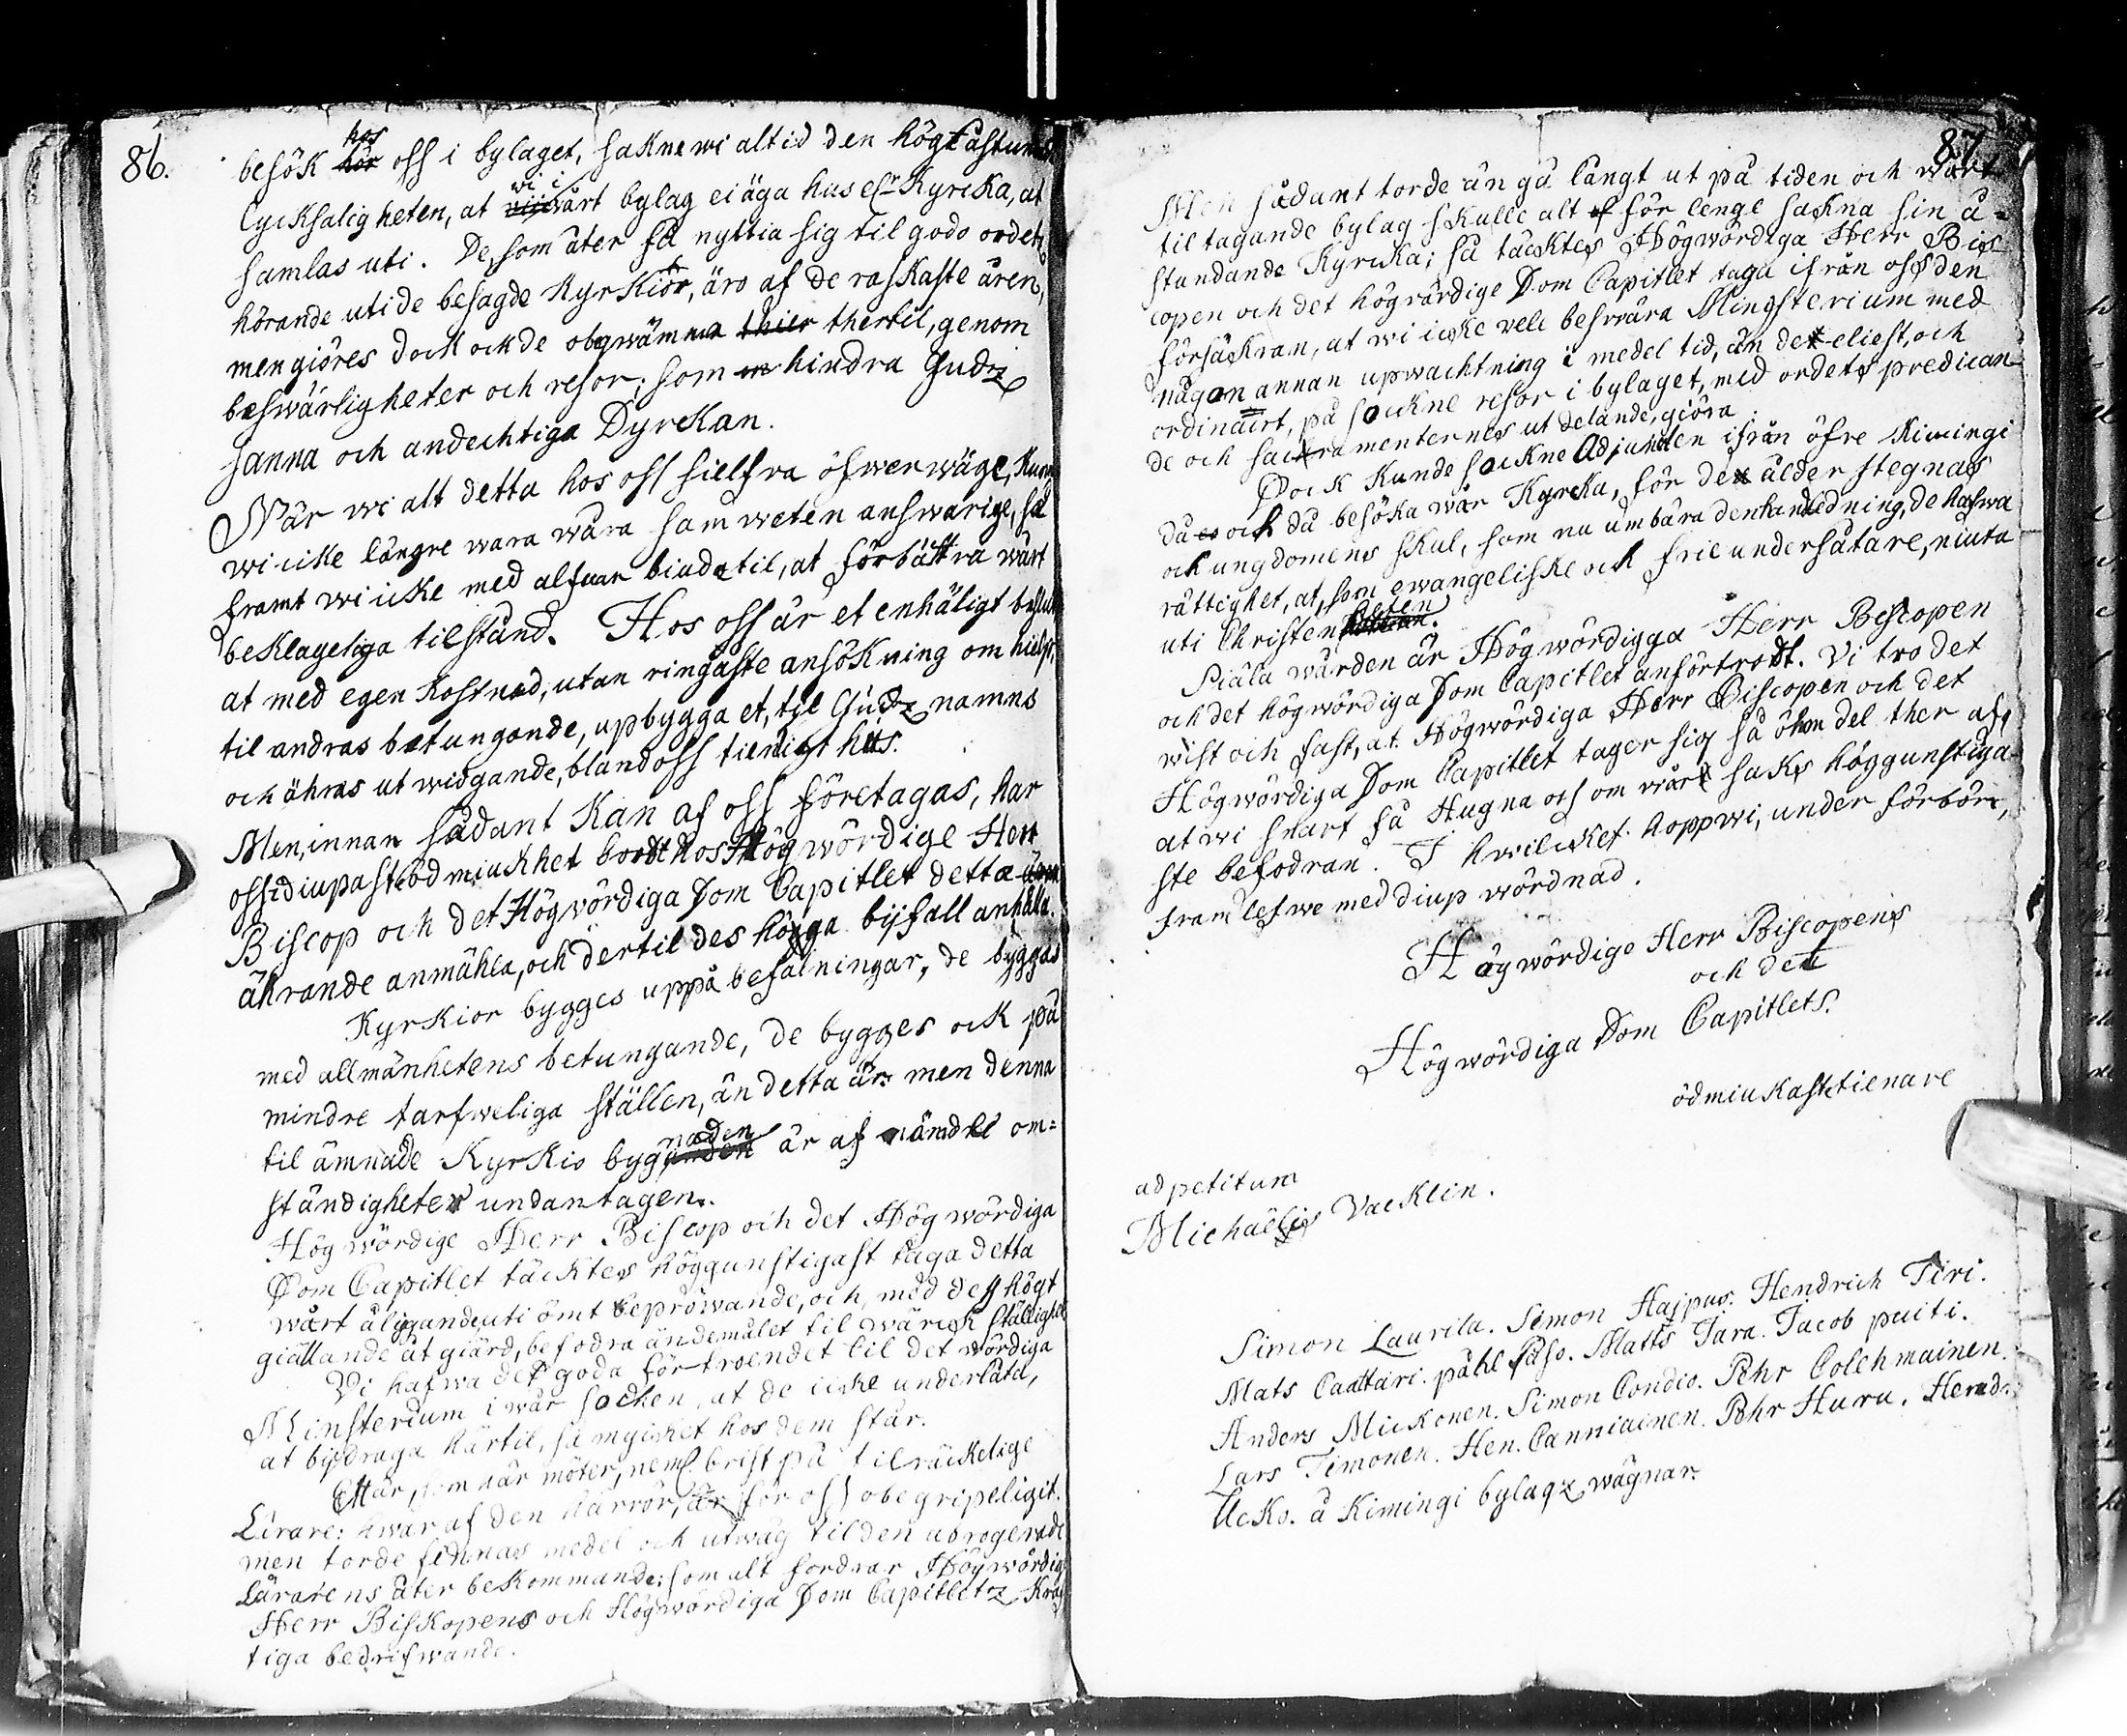 86.
besök hos oss i bylaget, sakne wi altid den högt åstun
lycksaligheten, at wi i wårt bylag ei äga hus elr Kyrcka, at
samlas uti. De, som åter få nyttia sig til godo ordetz
hörande uti de besagde Kyrkior, äro af de raskaste åren,
men giöres dock ock de obqwämna thertil, genom
beswärligheter och resor; som hindra Gudz
sanna och andechtiga Dyrckan.
När wi alt detta hos oss sielfwa öfwerwäge, kunne
wi icke längre wara wåra samweten answarige, så
framt wi icke med alfwar biuda til, at förbättra wårt
beklageliga tilstånd. Hos oss är et enhäligt beslut
at med egen kostnad, utan ringaste ansökning om hielp,
til andras betungande, upbygga et, til Gudz namns
och ähras utwidgande, bland oss tienligt hus.
Men, innan sådant kan af oss företagas, har
oss i diupaste ödmiukhet bordt hos Högwördige Herr
Biscop och det Högwördiga Dom Capitlet detta
ährande anmähla, och dertil des höga bijfall anhålla.
Kyrkior bygges uppå befalningar, de byggas
med allmänhetens betungande, de bygges ock på
mindre tarfweliga ställen, än detta är. men denna
til ämnade Kyrkio bygnaden är af nämdte om=
ständigheter undantagen.
Högwördige Herr Biscop och det Högwördiga
Dom Capitlet täcktes höggunstigast taga detta
wårt åliggande, uti ömt bepröwande, och, med dess högt
giällande åtgiärd, befodra ändemålet til wärckställighet
Vi hafwa det goda förtroendet til det wördiga
Minsterium i wår sochen, at de icke underlåta,
at bijdraga härtil, så myicket hos dem står.
Ett är, som här möter, neml. brist på tilräckelige
Lärare; hwar af den härrör, är för oss obegripeligit.
men torde finnas medel och utwäg til den abrogerade
Lärarens åter bekommande; som alt fordrar Högwördige
Herr Biskopens och Högwördiga Dom Capitletz kraf
tiga bedrifwande.
87
Men sådant torde än gå långt ut på tiden och wårt
til tagande bylag skulle alt för lenge sackna sin å=
stundande Kyrcka; så täcktes Högwördiga Herr Bis=
copen och det högwärdige Dom Capitlet taga ifrån oss den
försäckran, at wi icke vele beswära Mingsterium med
någon annan upwachtning i medel tid, än det eliest, och
ordinairt, på sockne resor i bylaget, med ordets predican=
de och sacramenternes utdelande, giöra.
Dock kunde sockne Adjuncten ifrån öfre Kimingi
då och då besöka wår Kyrcka, för de ålderstegnas
och ungdomens skul, som nu umbära den handledning, de hafwa
rättighet, at, som ewangeliske och frie undersåtare, niuta
uti Christenheten.
Siäla wården är Högwördigga Herr Biscopen
och det högwördiga Dom Capitlet anförtrodt. Vi tro det
wist och fast, at Högwördiga Herr Biscopen och det
Högwördiga Dom Capitlet tager sig så öhm del ther af,
at wi snart få Hugna oss om wår saks höggunstiga=
ste befodran. I hwilcket hopp wi, under förbön,
framlefwe med diup wördnad.
Högwördige Herr Biscopens
och det
Högwördiga Dom Capitlets.
ödmiukaste tienare
ad petitum
Michaëlis Vacklin.
Simon Laurila. Simon Hajpus. Hendrich Tiri.
Mats Caattari. påhl påso. Matts Tara. Jacob puiti.
Anders Mickonen. Simon Condio. Pehr Colehmainen.
Lars Timonen. Hen. Canniainen. Pehr Huru. Hend:
Ucko. å Kimingi bylagz wägnar.